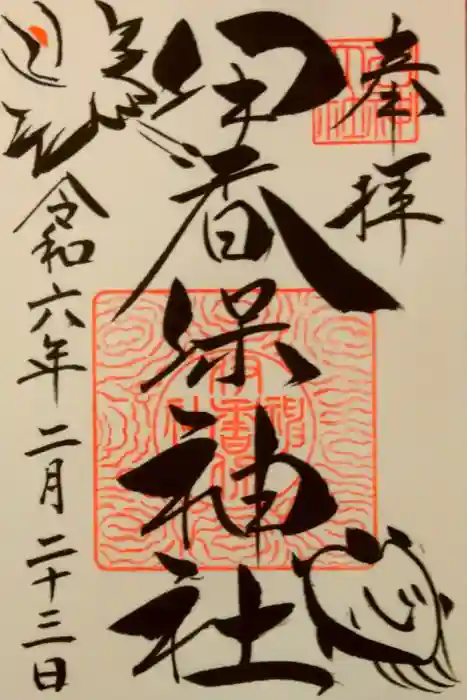 奉拝
心
伊香保神社
令和六年二月二十三日